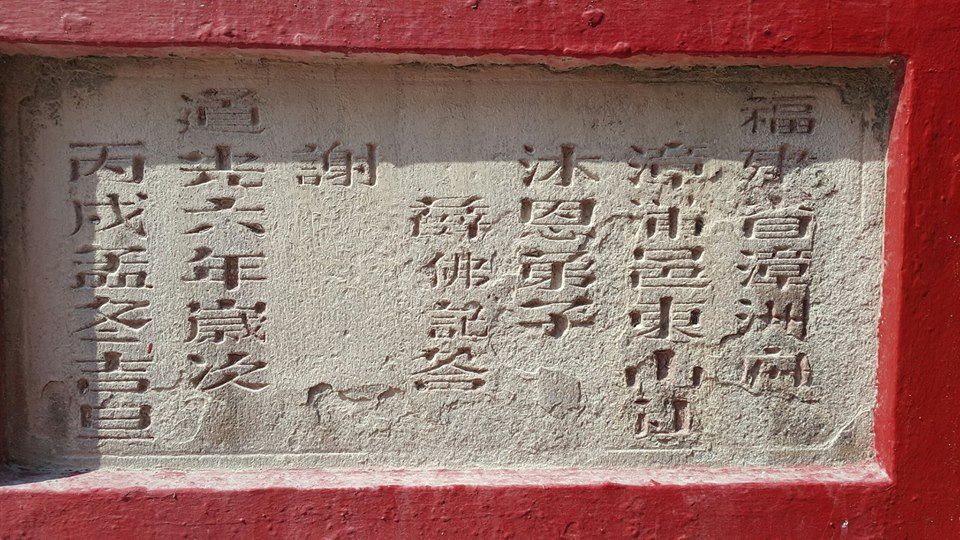 福建省漳洲府
漳浦邑東山社
沐恩弟子
蘇佛記答
謝
道光六年歲次
丙戌孟冬吉旦